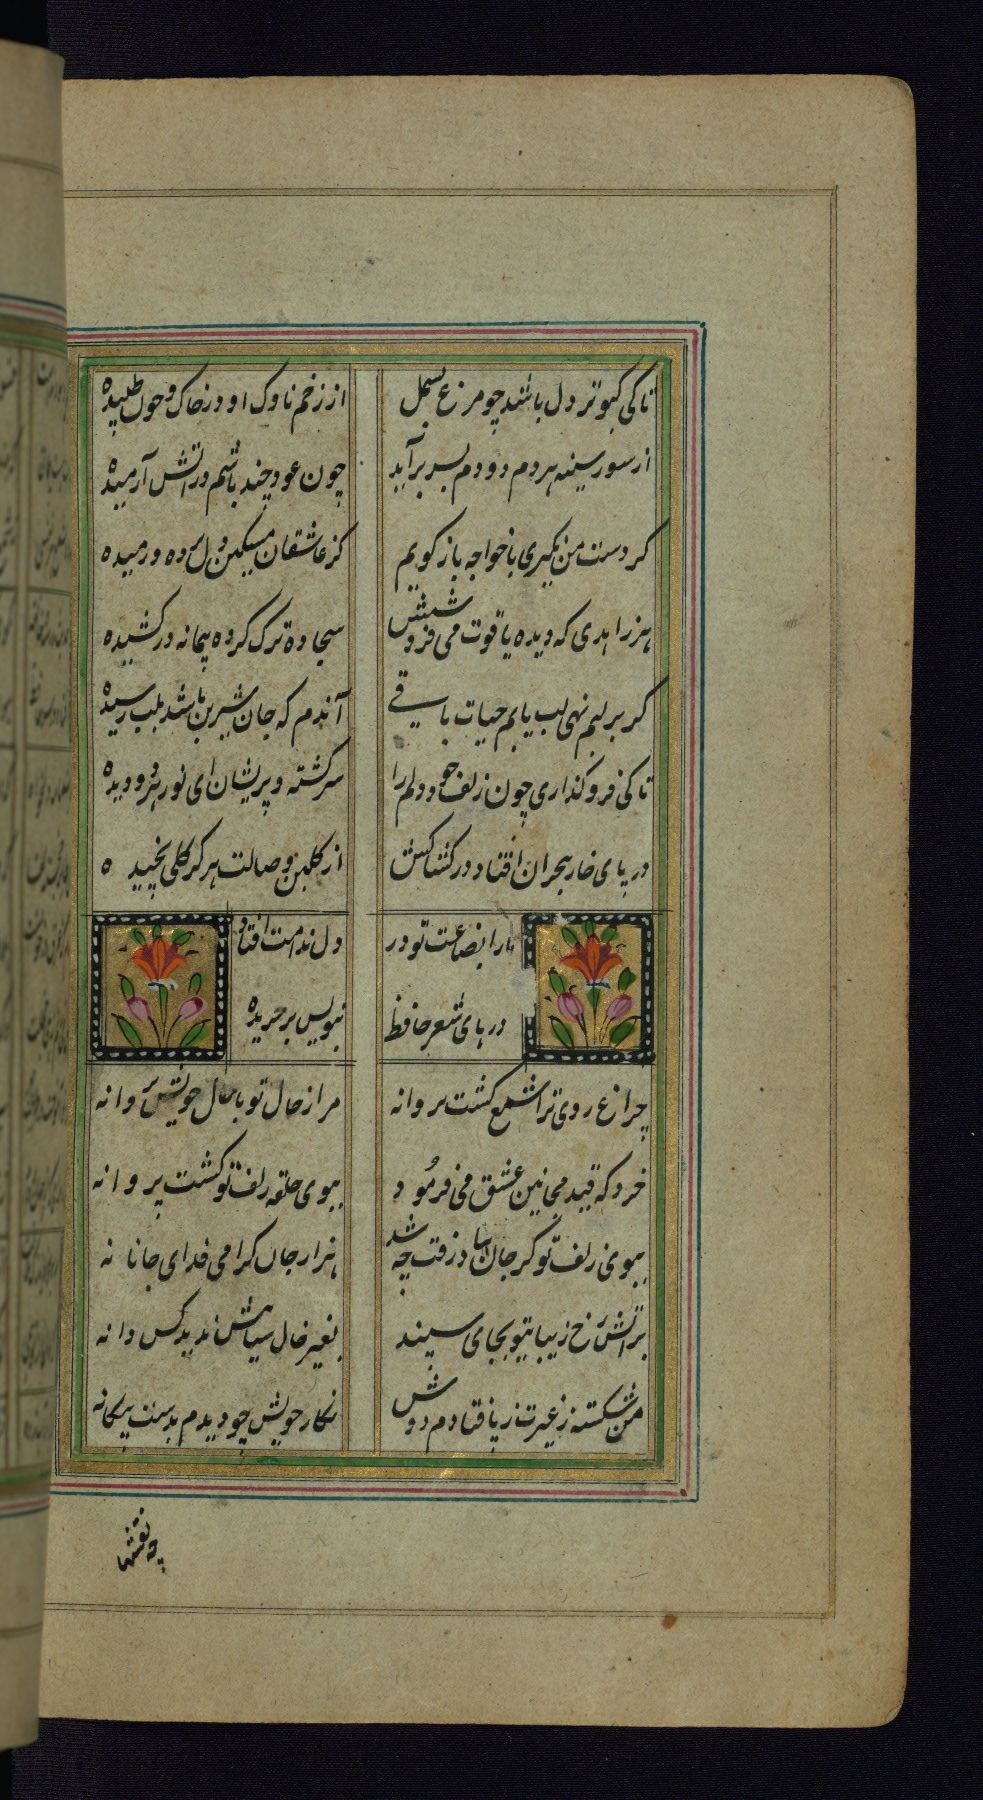 تا کی کبوتر دل باشد چو مرغ بسمل
از زخم ناوک او در خاک و خون طپیده
از سوز سینه هر دم دودم بسر برآید
چون عود چند باشم در آتش آرمیده
کر دست من نکیری با خواجه باز کویم
کز عاشقان مسکین دل برده و رمیده
هر زاهدی که دیده یاقوت می فروشش
سجاده ترک کرده پیمانه در کشیده
کر بر لبم نهی لب یابم حیات باقی
آندم که جان شیرین باشد بلب رسیده
تا کی فرو کذاری چون زلف خود دلم را
سرکشته و پریشان ای نور هر دو دیده
در پای خار هجران افتاد در کشاکش
از کلبن وصالت هرکز کلی نچیده
ما را بضاعت تو در
دل افتاد
درهای شعر حافظ
بنویس بر جریده
چراغ روی ترا شمع کشت پروانه
مرا ز حال تو با حال خویش پروانه
خرد که قید مجانین عشق می فرمود
ببوی حلقه زلف تو کشت پروانه
ببوی زلف تو کر جان بباد رفت چه شد
هزار جان کرامی فدای جانانه
بر آتش رخ زیبای تو بجای سپند
بغیر خال سیاهش ندید کس دانه
من شکسته ز غیرت ز پا فتادم دوش
نکار خویش چو دیدم بدست بیکانه
چه نقشها